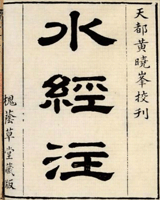 天都黃曉峯校刊
水經注
槐蔭草堂藏版